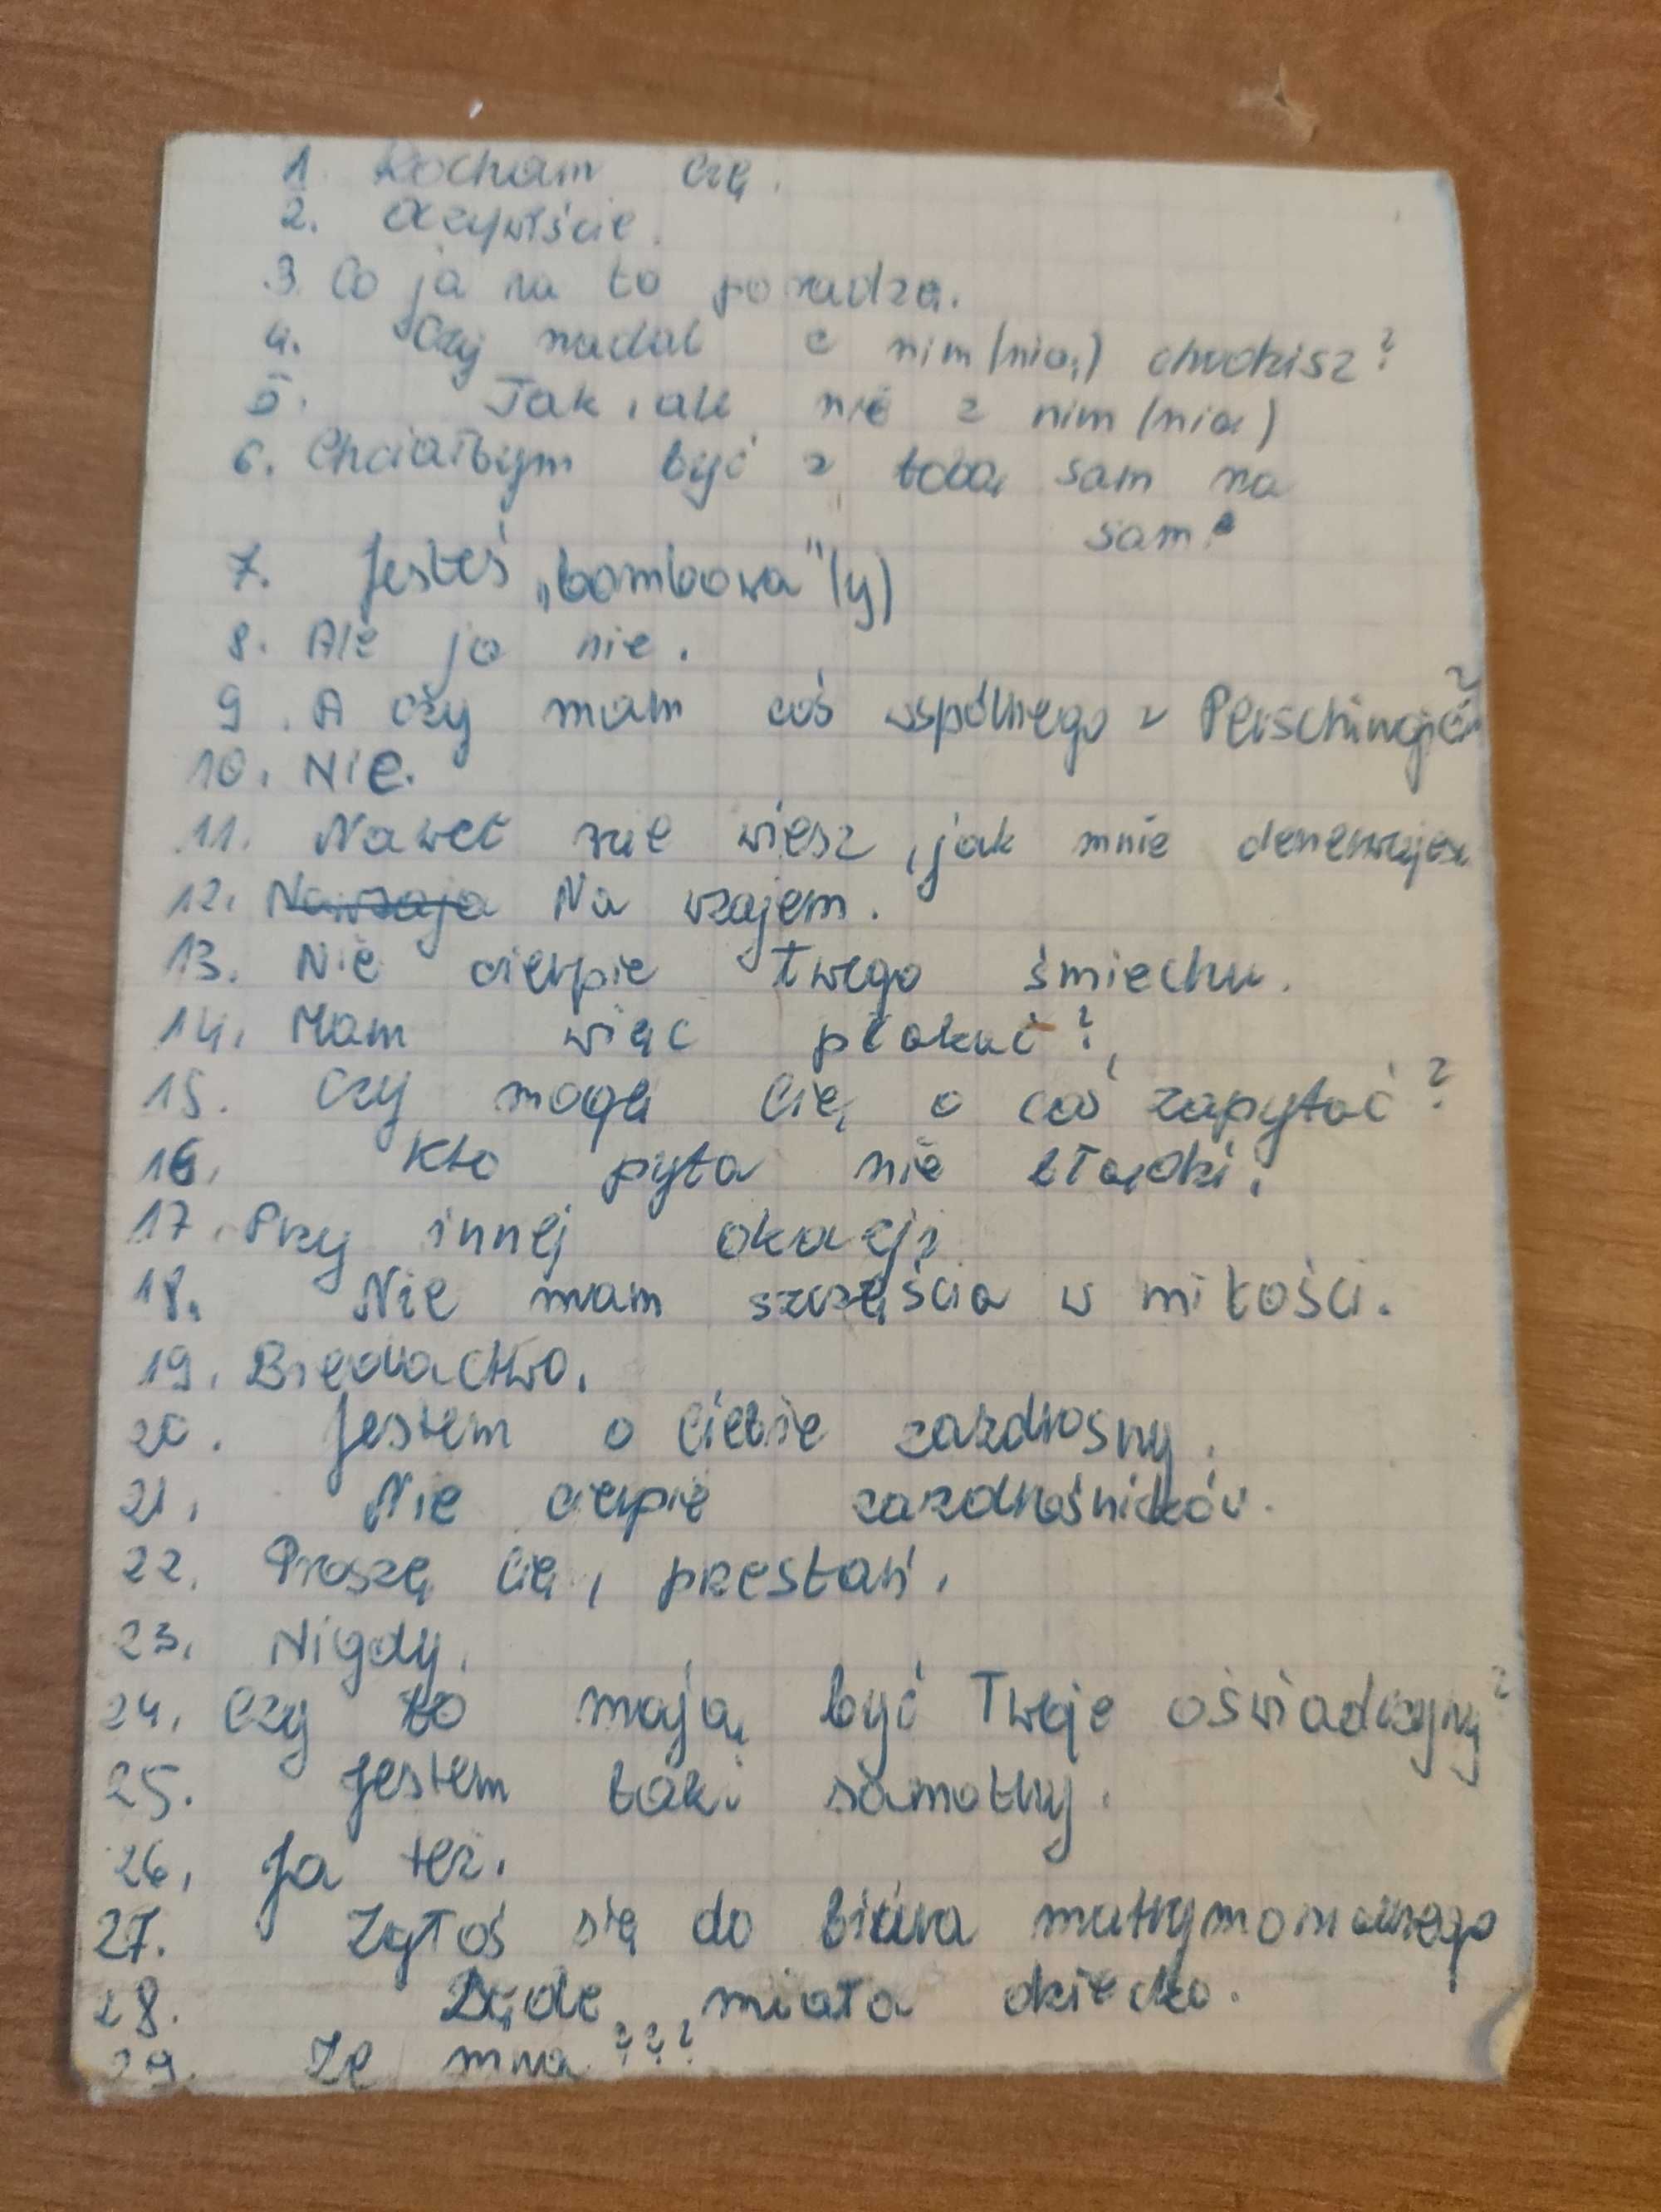 1. Kocham Cię.
2. Oczywiście.
3. Co ja na to poradzę.
4. Czy nadal z nim (nią) chodzisz?
5. Tak, ale nie z nim (nią)
6. Chciałbym być z tobą sam na
sam.
7. Jesteś „bombowa"(y)
8. Ale ja nie.
9. A czy mam coś wspólnego z
10. Nie.
11. Nawet nie wiesz, jak mnie denerwujesz
12. Na wzajem.
13. Nie cierpie twego śmiechu.
14. Mam więc płakać?
15. Czy mogę Cię o coś zapytać?
16. Kto pyta nie błądzi.
17. Przy innej okazji
18. Nie mam szczęścia w miłości.
19. Biedactwo.
20. Jestem o Ciebie zazdrosny.
21. Nie cierpię zazdrośników.
22. Proszę Cię, przestań.
23. Nigdy.
24. Czy to mają być Twoje oświadczyny?
25. Jestem taki samotny.
26. Ja też.
27. Zgłoś się do biura matrymonialnego
28. Będę miała dziecko.
29. Ze mną???